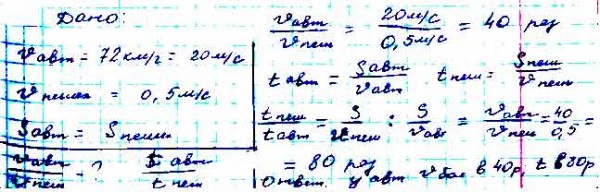 Дано:
v авт = 72 км/г = 20 м/с
v пешех = 0,5 м/с
S авт = S пеш.
v авт / v пеш - ? t авт / t пеш
v авт / v пеш = 20 м/с / 0,5 м/с = 40 раз
t авт = S авт / v авт t пеш = S пеш / v пеш
t пеш / t авт = S / v пеш : S / v авт = v авт / v пеш = 40 / 0,5 =
= 80 раз
Ответ. у авт v бол в 40 р, t в 80 р